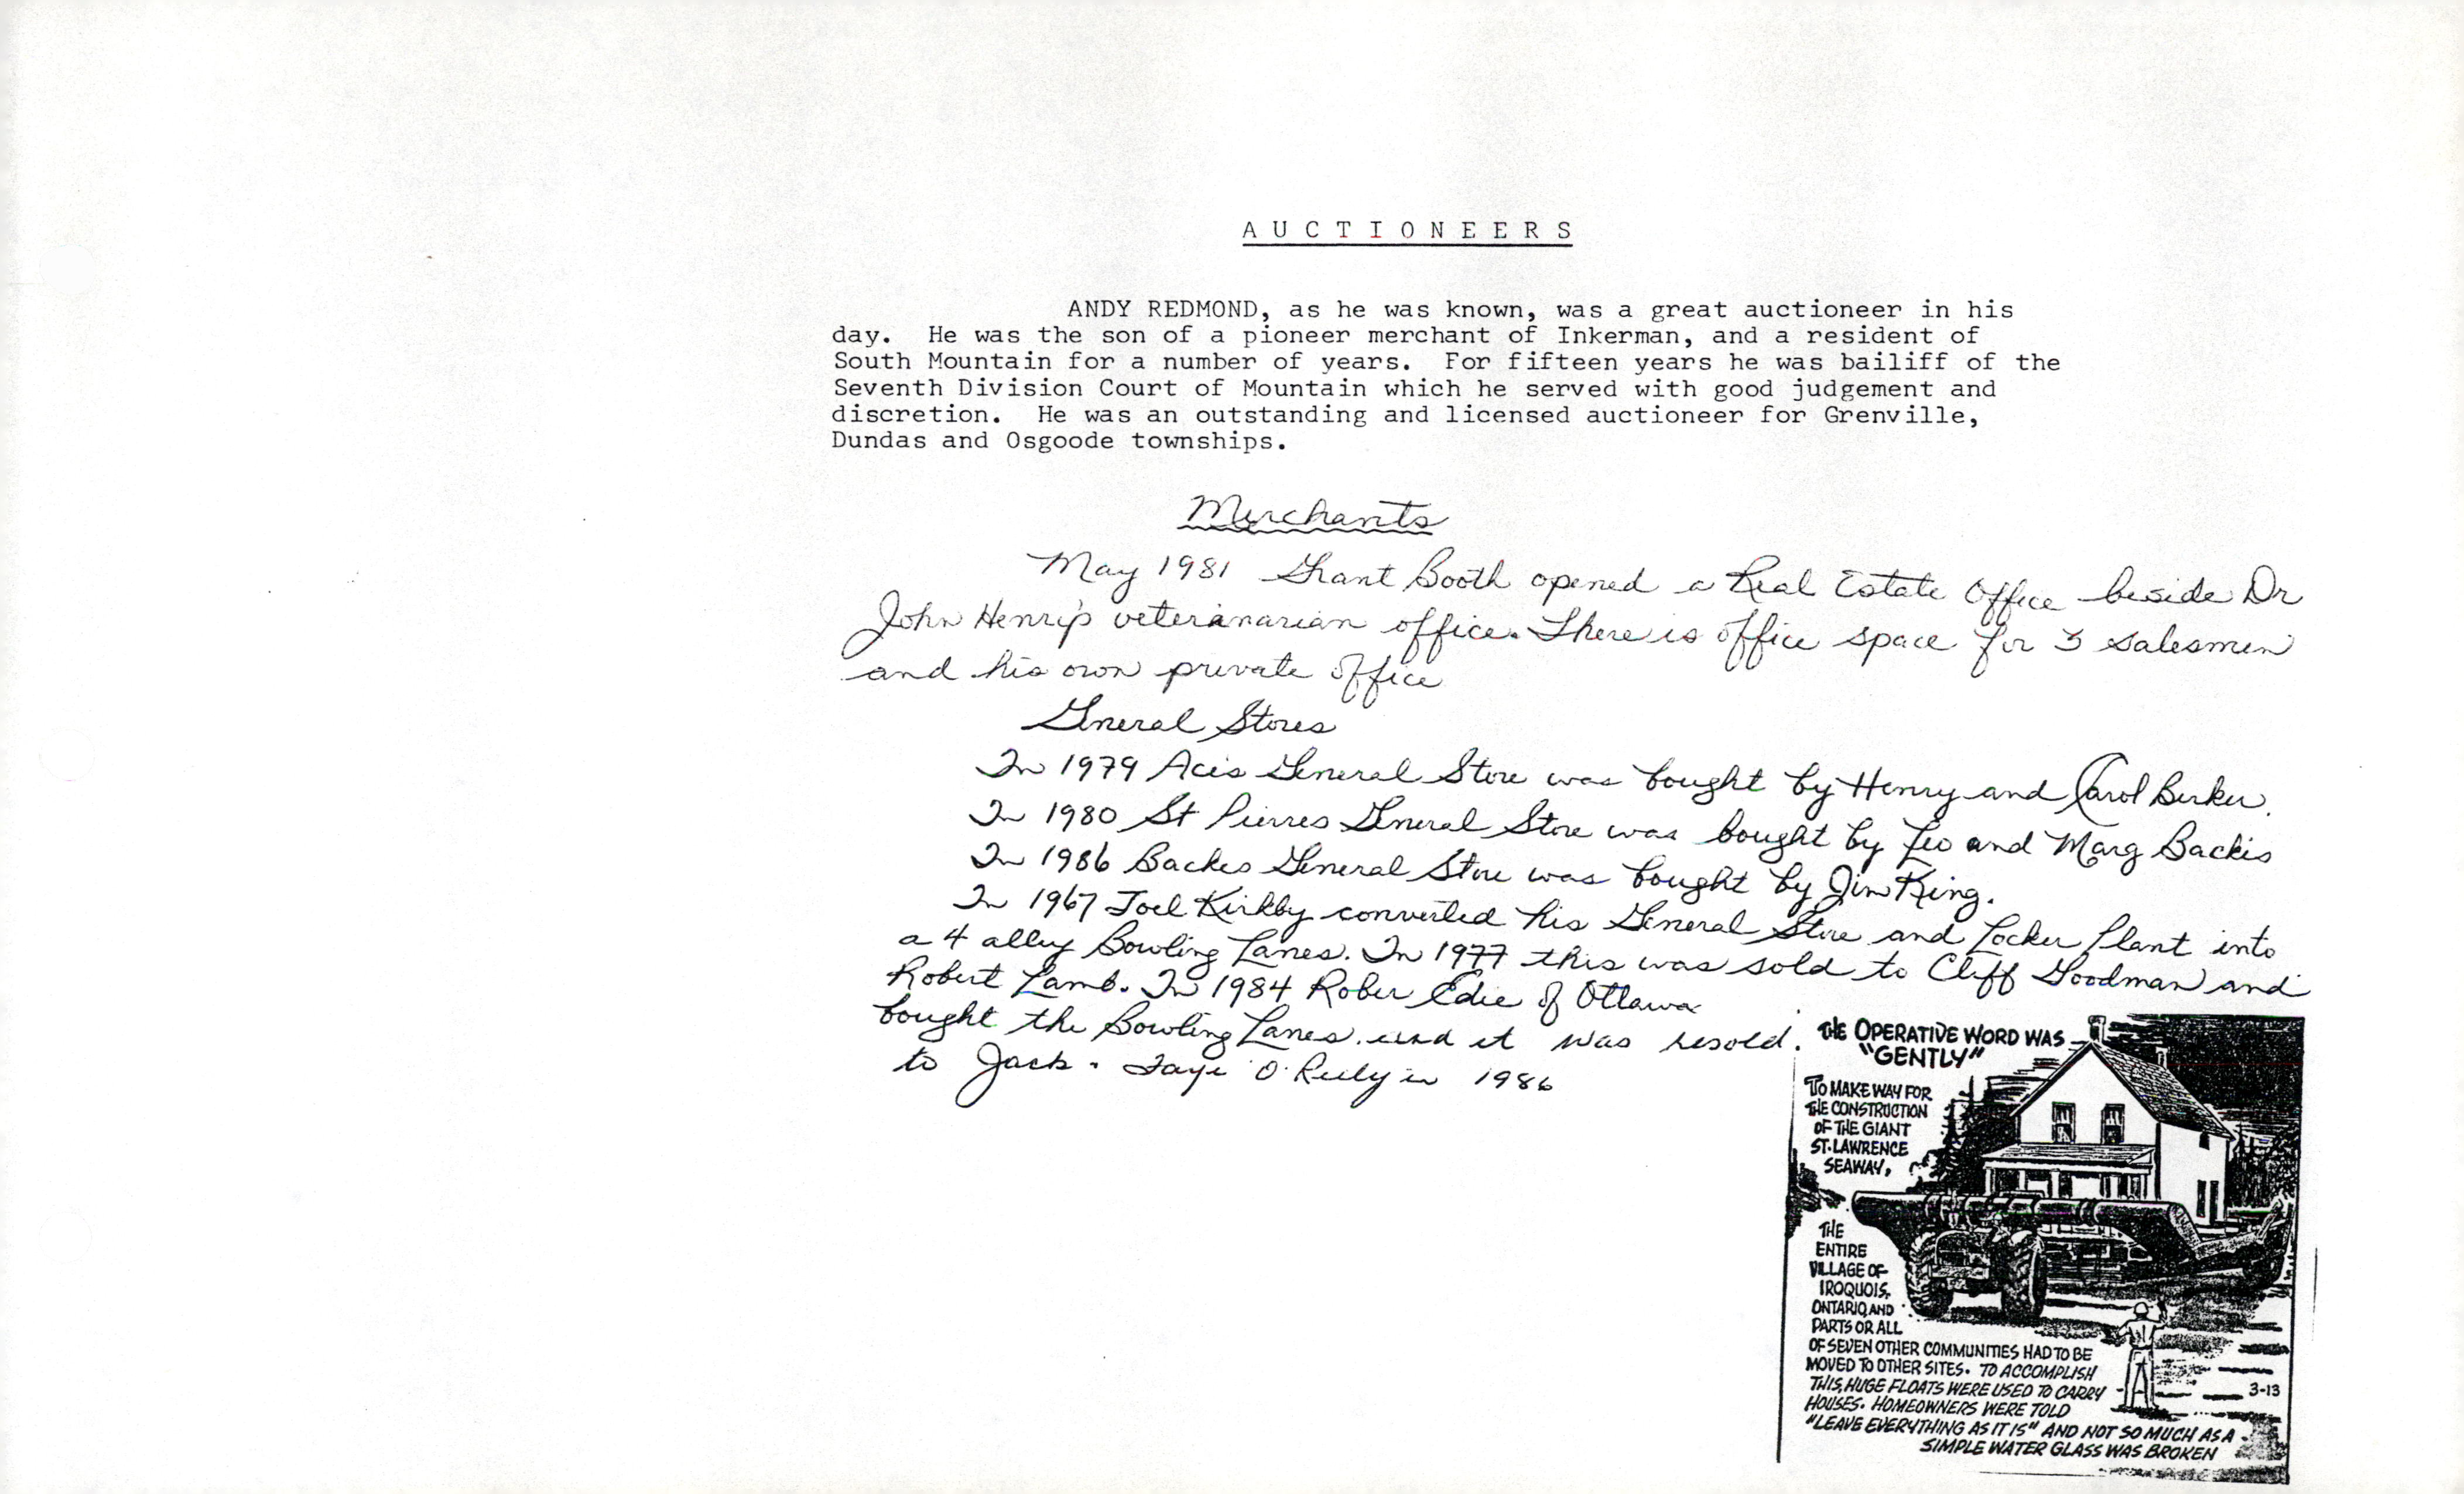 A U C T I O N E E R S
ANDY REDMOND, as he was known, was a great auctioneer in his
day. He was the son of a pioneer merchant of Inkerman, and a resident of
South Mountain for a number of years. For fifteen years he was bailiff of the
Seventh Division Court of Mountain which he served with good judgement and
discretion. He was an outstanding and licensed auctioneer for Grenville,
Dundas and Osgoode townships.
Merchants
May 1981 Grant Booth opened a Real Estate Office beside Dr
John Henry's veteranarian office. There is office space for 3 salesmen
and his own private office
General Stores
In 1979 Aces General Store was bought by Henry and Carol Berker.
In 1980 St Pierres General Store was bought by Leo and Marg Backes
In 1986 Backes General Store was bought by Jim King.
In 1967 Joel Kirkby converted his General Store and Locker Plant into
a 4 alley Bowling Lanes. In 1977 this was sold to Cliff Goodman and
Robert Lamb. In 1984 Rober Edie of Ottawa
bought the Bowling Lanes. and it was resold.
to Jack. Faye O'Reily in 1986
THE OPERATIVE WORD WAS
"GENTLY"
TO MAKE WAY FOR
THE CONSTRUCTION
OF THE GIANT
ST. LAWRENCE
SEAWAY,
THE
ENTIRE
VILLAGE OF
IROQUOIS,
ONTARIO, AND
PARTS OR ALL
OF SEVEN OTHER COMMUNITIES HAD TO BE
MOVED TO OTHER SITES. TO ACCOMPLISH
THIS, HUGE FLOATS WERE USED TO CARRY
HOUSES. HOMEOWNERS WERE TOLD
"LEAVE EVERYTHING AS IT IS" AND NOT SO MUCH AS A
SIMPLE WATER GLASS WAS BROKEN
3-13